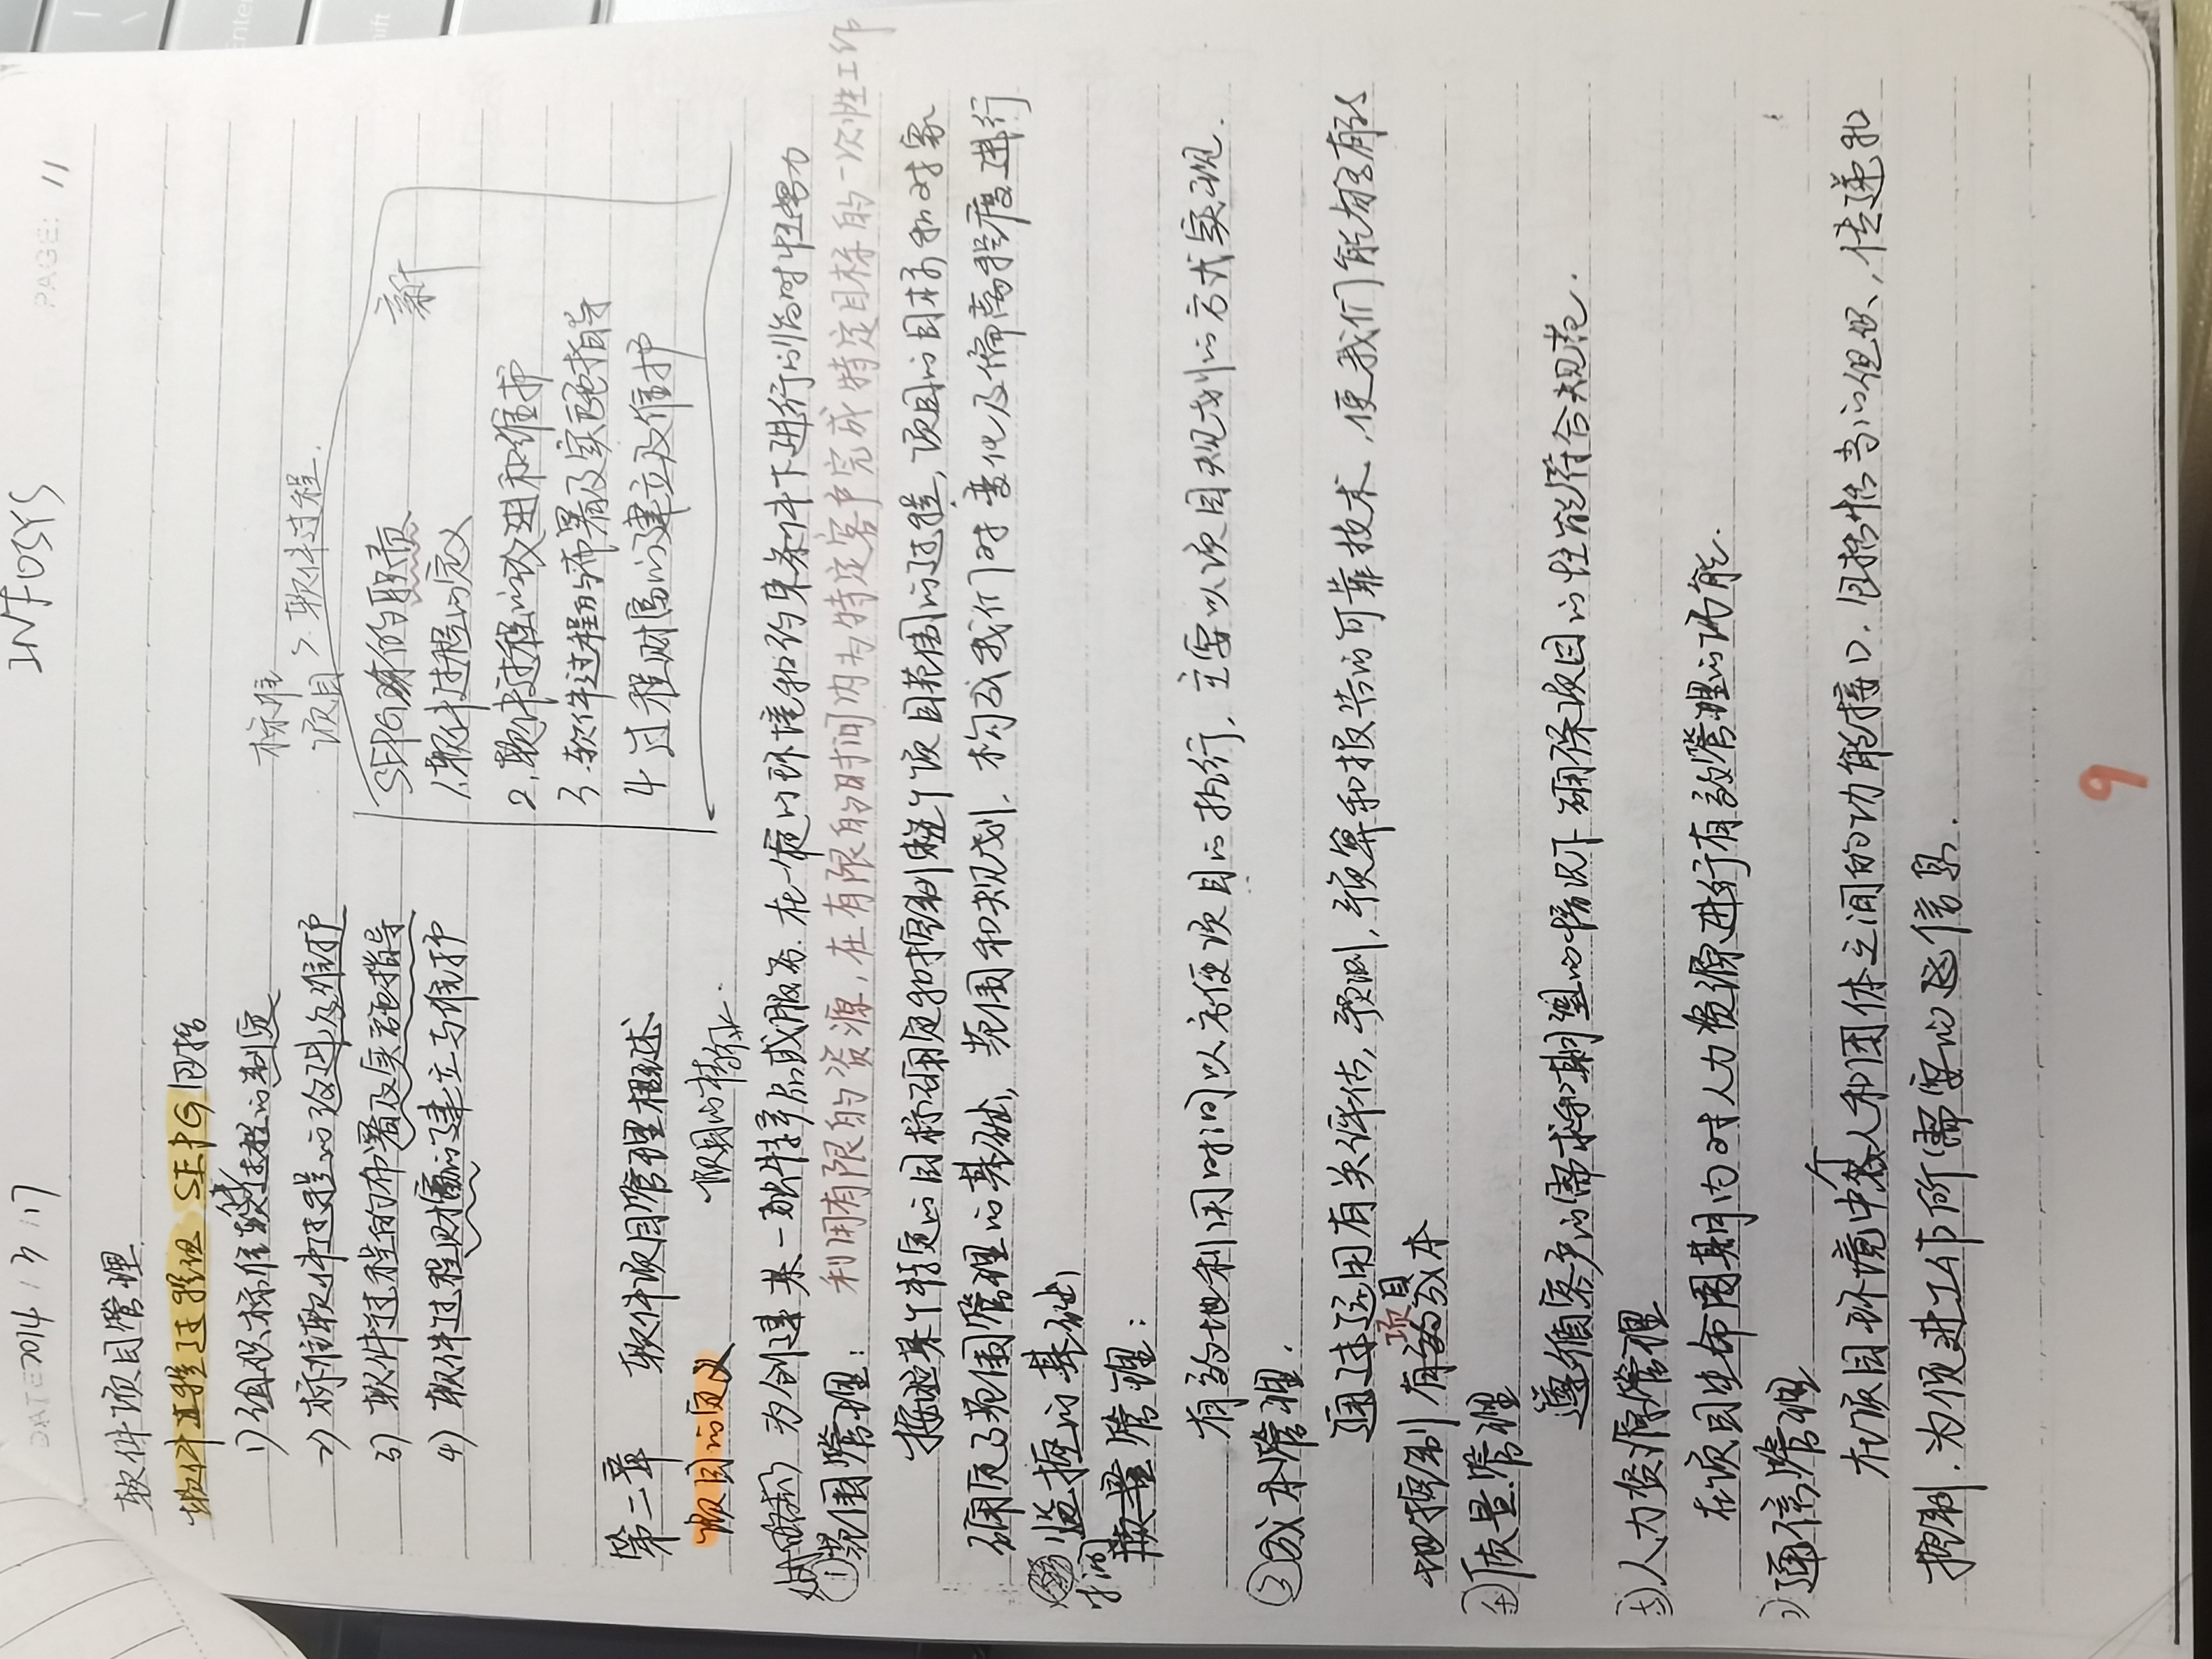 INFOSYS
DATE 2014 / 3 / 17
PAGE: 11
软件项目管理
软件工程过程组 SEPG 包括
1) 组织标准软件过程的制定
2) 标准软件过程的改进及维护
3) 软件过程的布署及实施指导
4) 软件过程财富的建立与维护
标准
项目 > 软件过程.
SEPG的职责 新
1.软件过程的定义
2.软件过程的改进和维护
3.软件过程的布署及实施指导
4 过程财富的建立及维护
第二章 软件项目管理概述
项目的定义 项目的特征.
为创建某一独特产品或服务.在一定的环境和约束条件下进行的临时性努力
利用有限的资源,在有限的时间内为特定客户完成特定目标的一次性工作
①范围管理:
据某个特定的目标确定和控制某个项目范围的过程,项目的目标和对象
确定了范围管理的基础,范围和规划,构成我们对变化及偏离程度进行
监控的基础
时间管理:
有效地利用时间以方便项目的执行,主要以项目规划的方式实现.
③成本管理.
通过运用有关评估,预测,预算和报告的可靠技术,使我们能够有效
地控制项目成本
④质量管理
遵循客户的需求和期望的情况下确保项目的性能符合规范.
⑤人力资源管理
在项目生命周期内对人力资源进行有效管理的功能.
通信管理
在项目环境中个人和团体之间的功能接口,包括恰当的组织、传递和
控制,为促进工作所需要的信息.
9